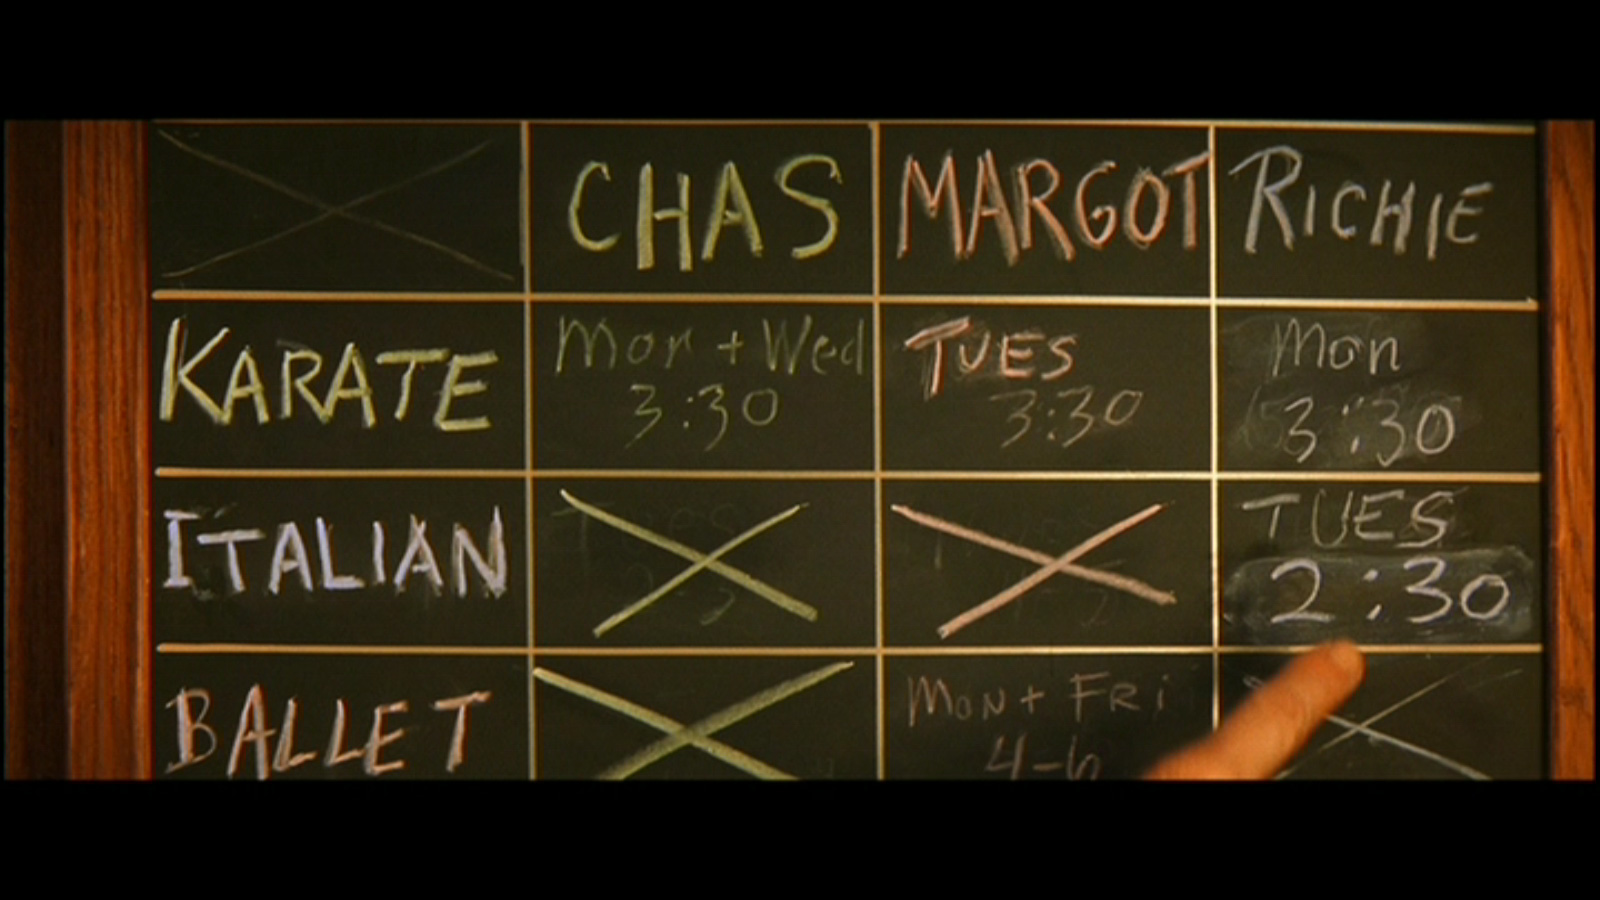 CHAS MARGOT RICHIE
KARATE Mon + Wed TUES Mon
3:30 3:30 3:30
ITALIAN TUES
2:30
BALLET MON + FRi
4-6